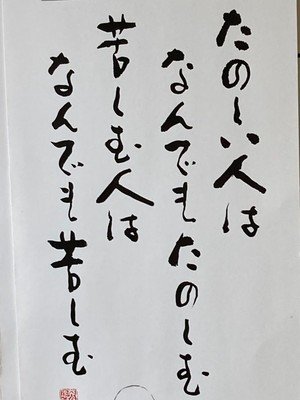 たのしい人は
なんでもたのしむ
苦しむ人は
なんでも苦しむ